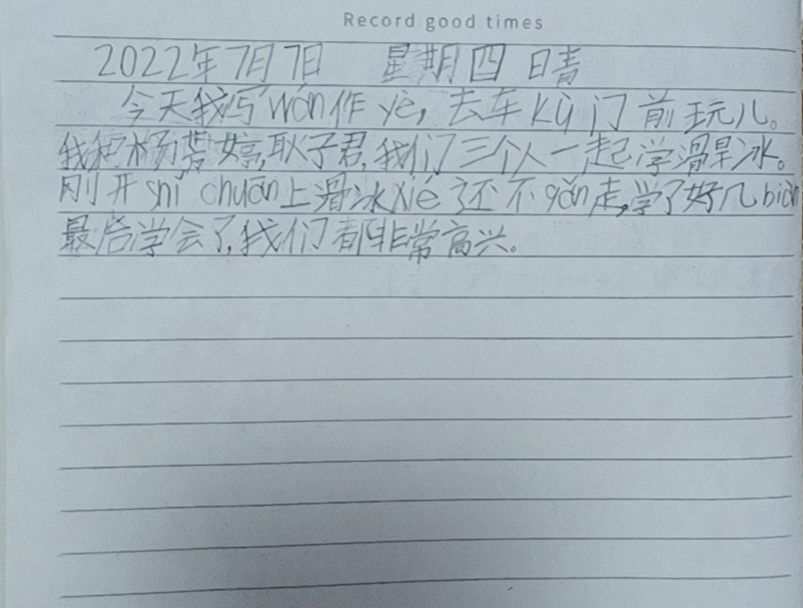 Record good times
2022年7月7日 星期四 晴
今天我写wán作yè,去车kù门前玩儿。
我和杨梦婷,耿子君,我们三个人一起学滑旱冰。
刚开shǐ chuān上滑冰xié还不gǎn走,学了好几biàn
最后学会了,我们都非常高兴。